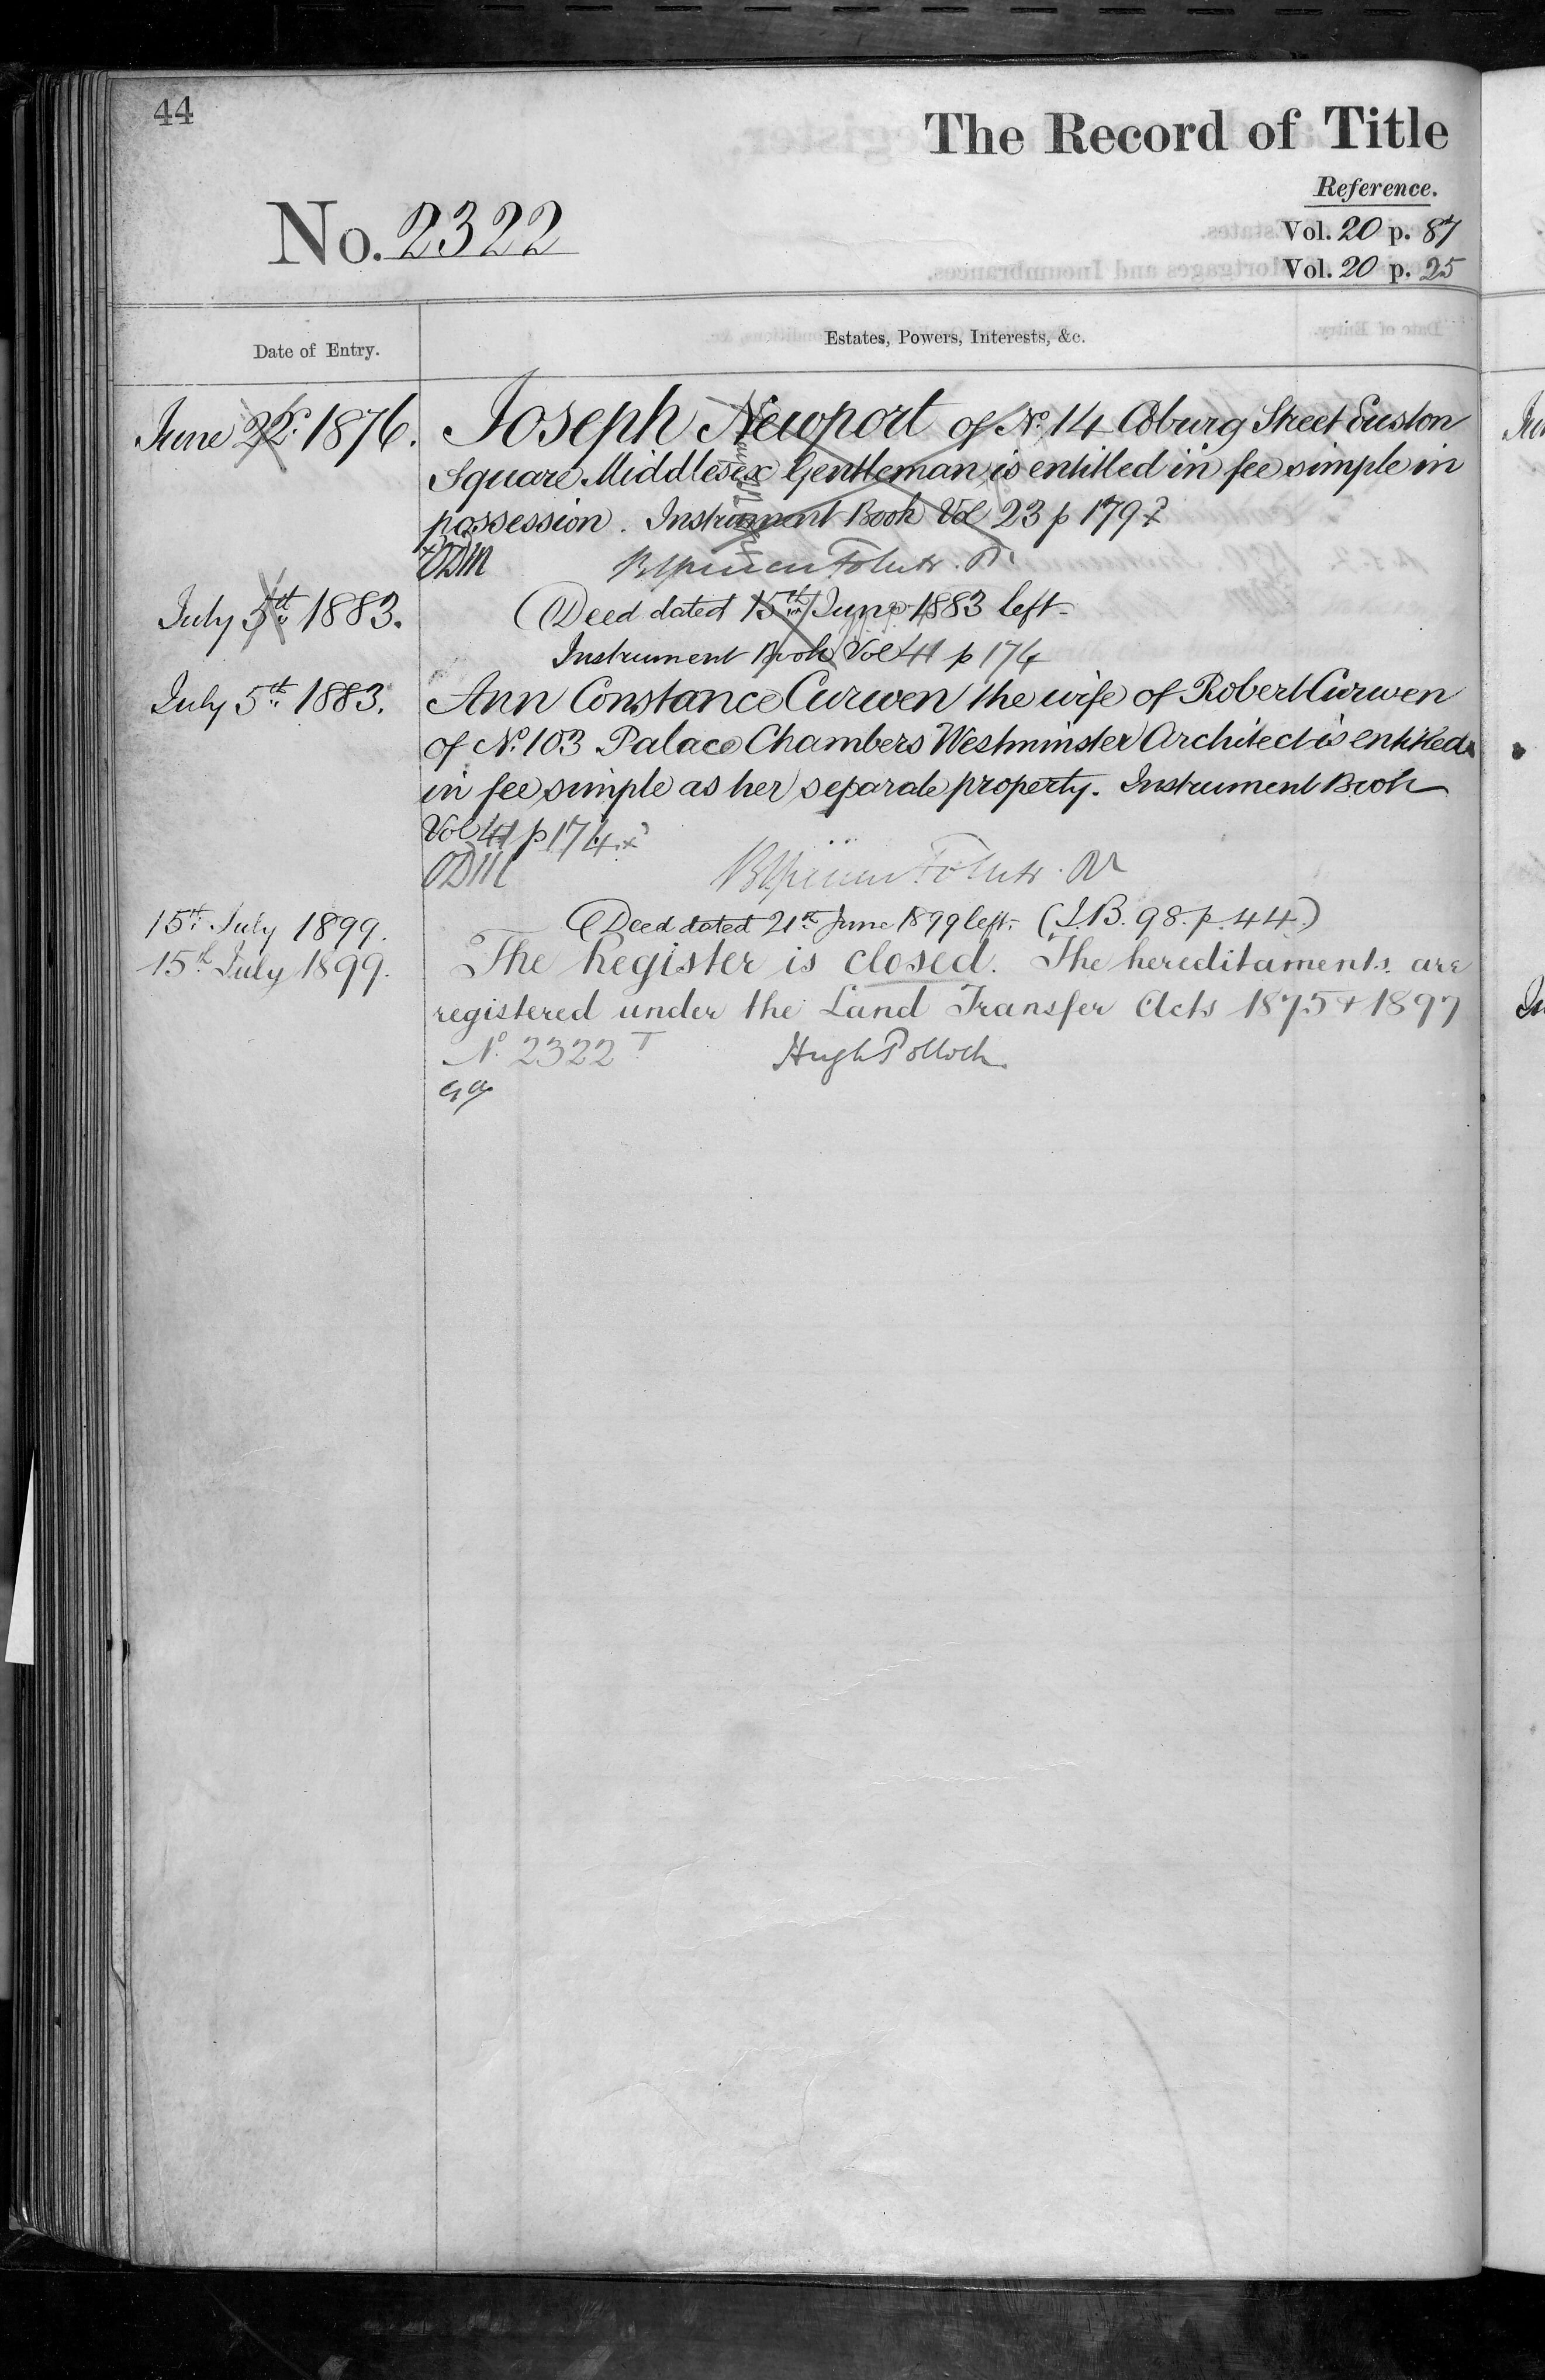 44
The Record of Title
Reference.
No. 2322
Vol. 20 p. 87
Vol. 20 p. 25
Date of Entry.
Estates, Powers, Interests, &c.
June 22d. 1876. Joseph Newport of No. 14 Coburg Street Euston
Square Middlesex Gentleman is entitled in fee simple in
possession. Instrument Book Vol 23 p 179
July 5th. 1883. Deed dated 15th June 1883 left
Instrument Book Vol 41 p 174
July 5th. 1883. Ann Constance Curwen the wife of Robert Curwen
of No. 103 Palace Chambers Westminster Architect is entitled
in fee simple as her separate property. Instrument Book
Vol 41 p 174.
15th. July 1899. Deed dated 21st June 1899 left. (I.B. 98. p. 44.)
15th July 1899. The Register is closed. The hereditaments are
registered under the Land Transfer Acts 1875 & 1897
No. 2322 T Hugh Pollock